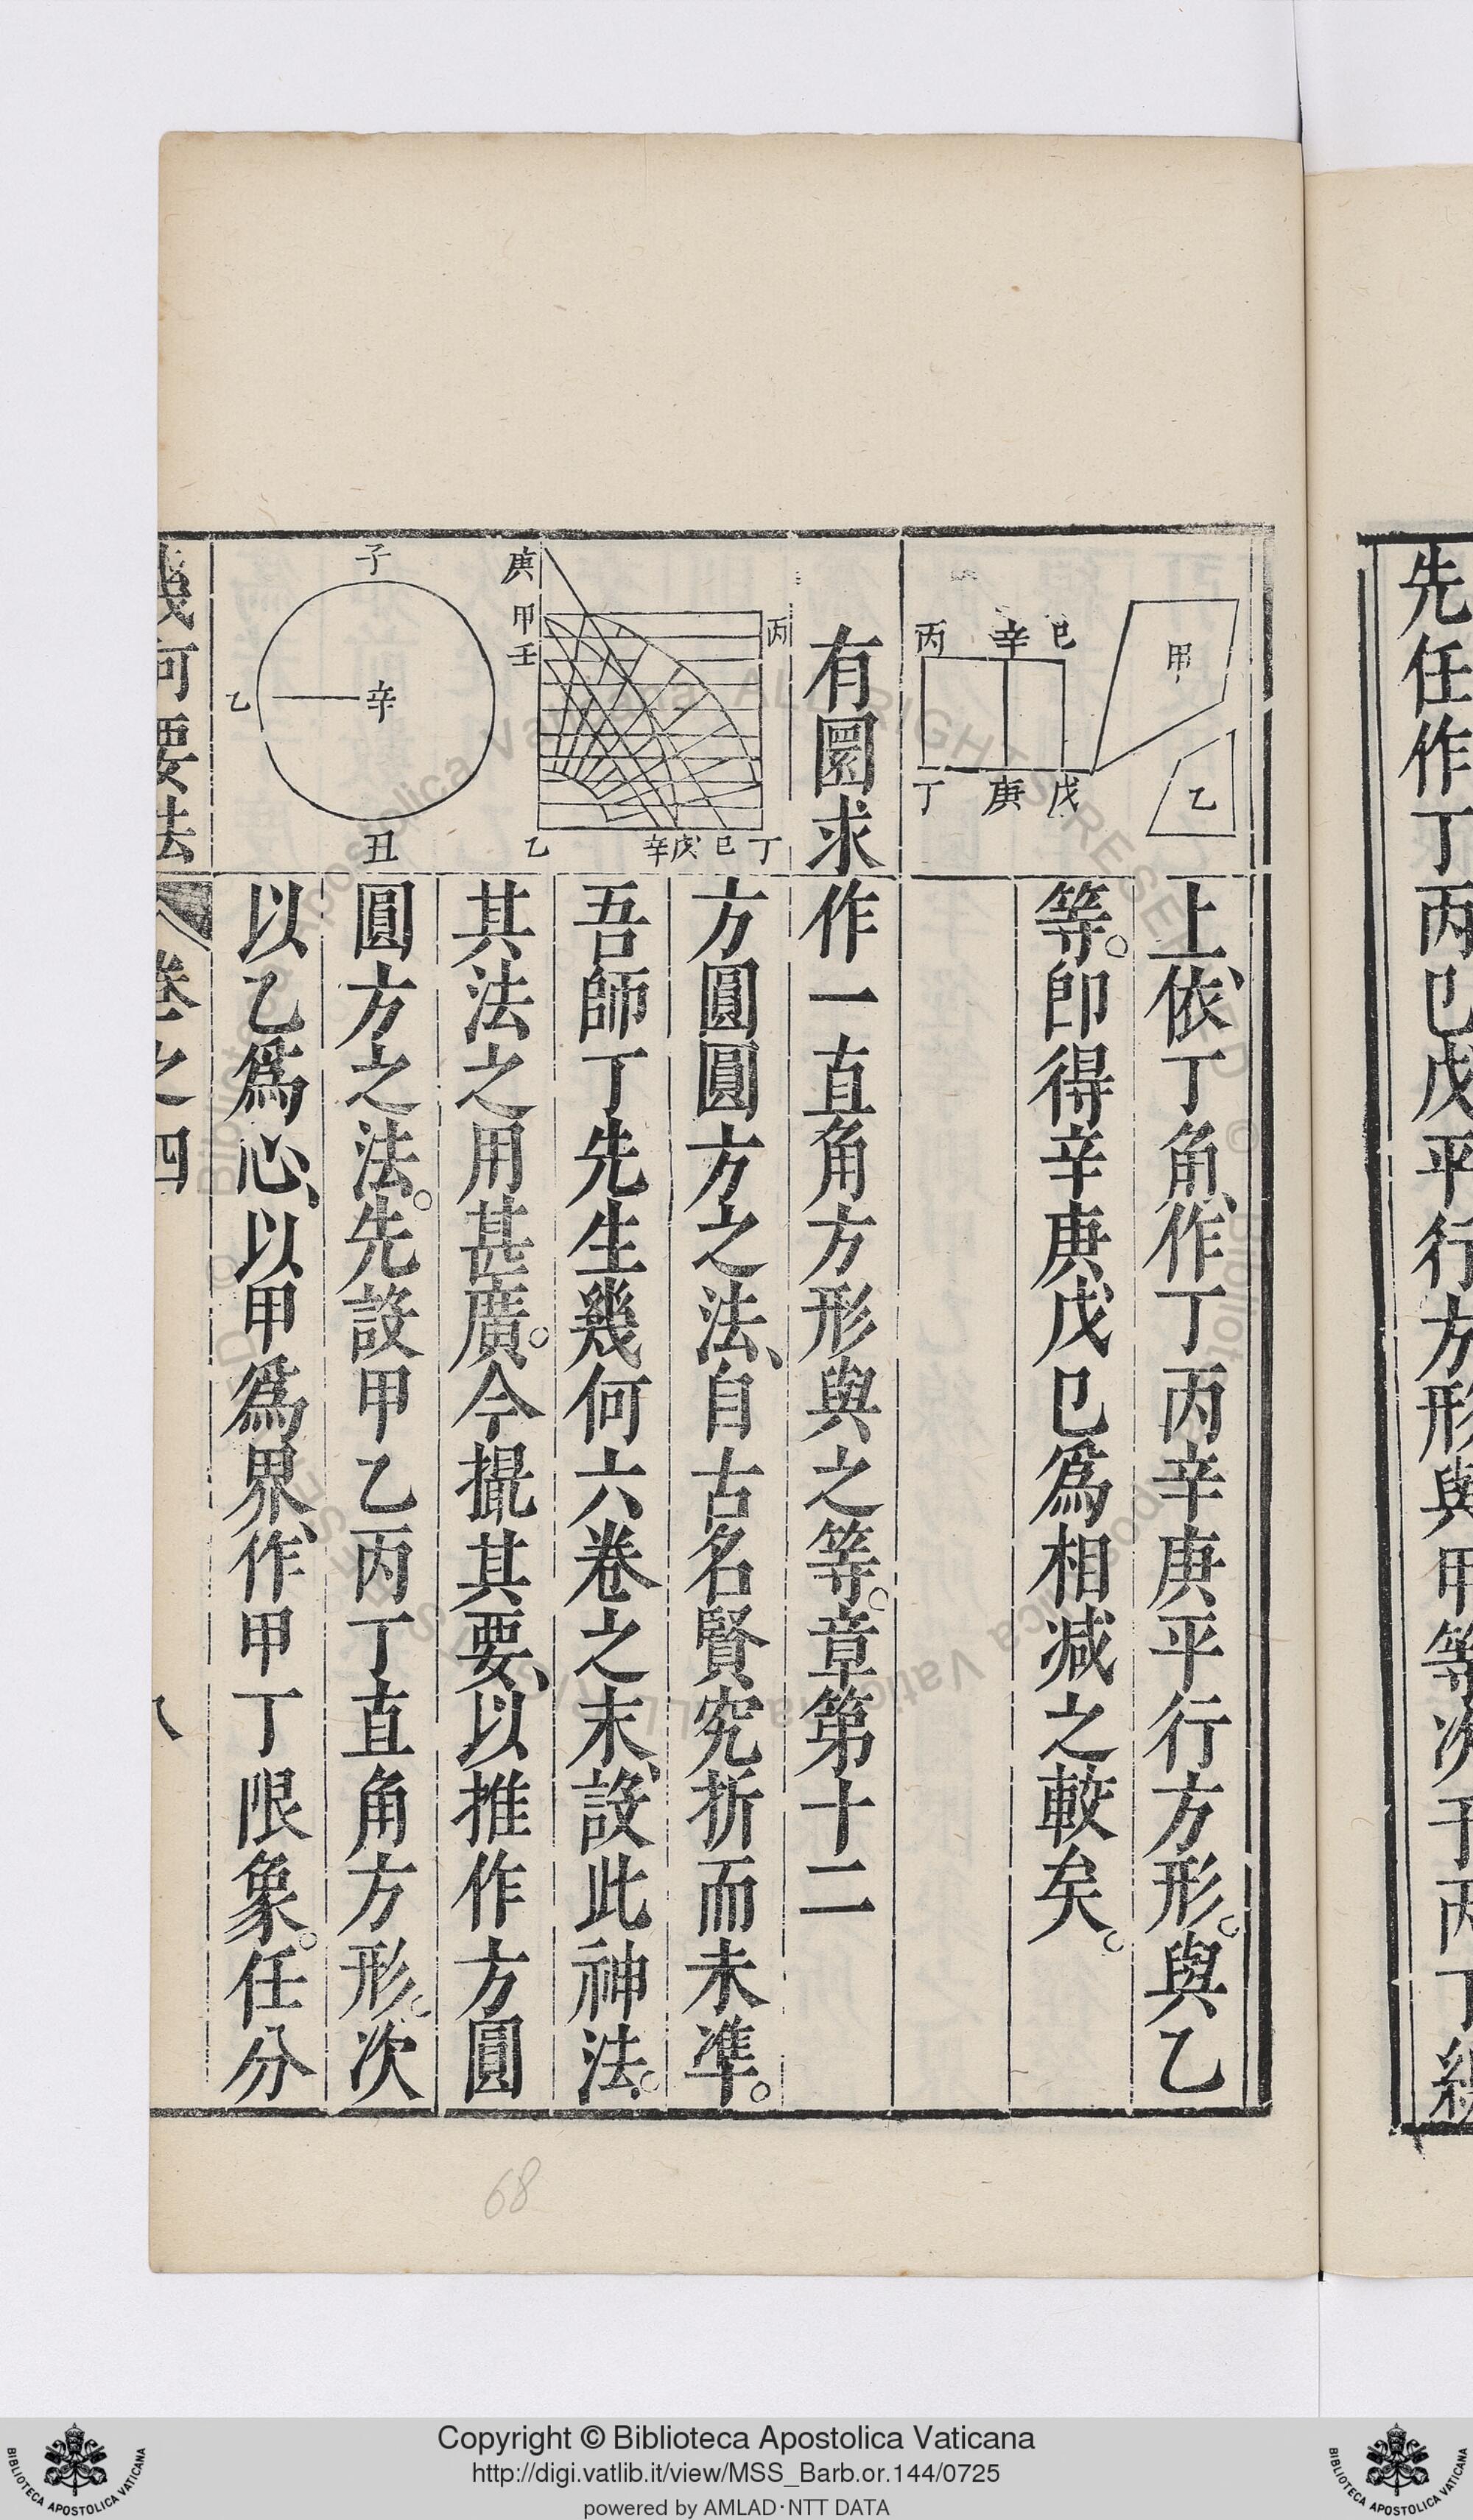 先任作丁丙已戊平行方形與甲等次于丙丁線
甲
乙
已
辛
丙
戊
庚
丁
上、依丁角、作丁丙辛庚平行方形。與乙
等。卽得辛庚戊已爲相减之較矣。
有圜求作一直角方形與之等。章第十二
方圓圓方之法、自古名賢究折而未準。
吾師丁先生幾何六卷之末、設此神法。
其法之用甚廣。今撮其要、以推作方圓
圓方之法。先設甲乙丙丁直角方形。次
以乙爲心、以甲爲界、作甲丁限象。任分
丙
庚
甲
壬
丁
已
戊
辛
乙
子
辛
乙
丑
幾何要法
卷之四
八
68
Copyright © Biblioteca Apostolica Vaticana
http://digi.vatlib.it/view/MSS_Barb.or.144/0725
powered by AMLAD·NTT DATA
BIBLIOTECA APOSTOLICA VATICANA
BIBLIOTECA APOSTOLICA VATICANA